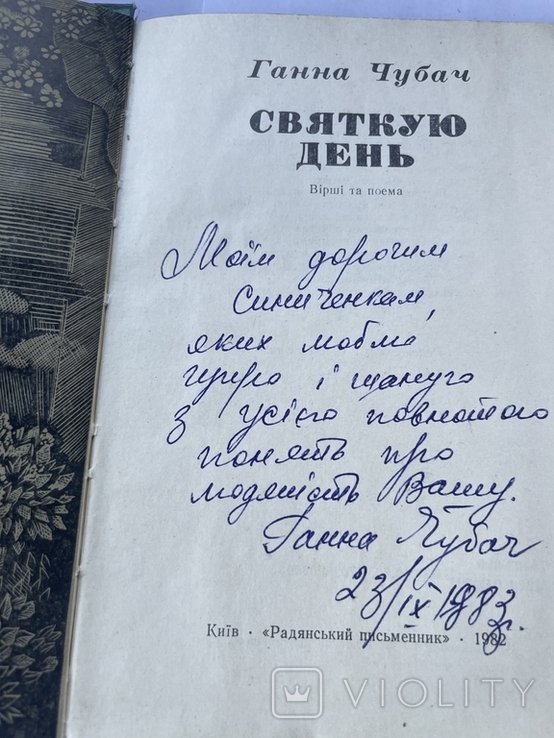 Ганна Чубач
СВЯТКУЮ
ДЕНЬ
Вірші та поема
Моїм дорогим
Синиченкам,
яких люблю
щиро і шаную
з усією повнотою
понять про
людяність Вашу.
Ганна Чубач
23/IX 1983 р.
Київ · «Радянський письменник» · 1982
VIOLITY